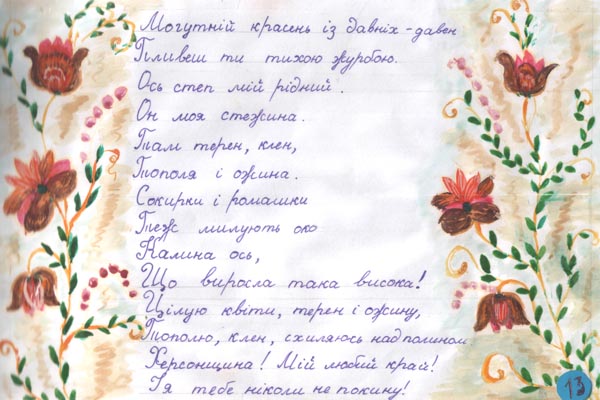 Могутній красень із давніх-давен
Пливеш ти тихою журбою.
Ось степ мій рідний.
Он моя стежина.
Там терен, клен,
Тополя і ожина.
Сокирки і ромашки
Теж милують око
Калина ось,
Що виросла така висока!
Цілую квіти, терен і ожину,
Тополю, клен, схиляюсь над полином.
Херсонщина! Мій любий край!
І я тебе ніколи не покину!
13